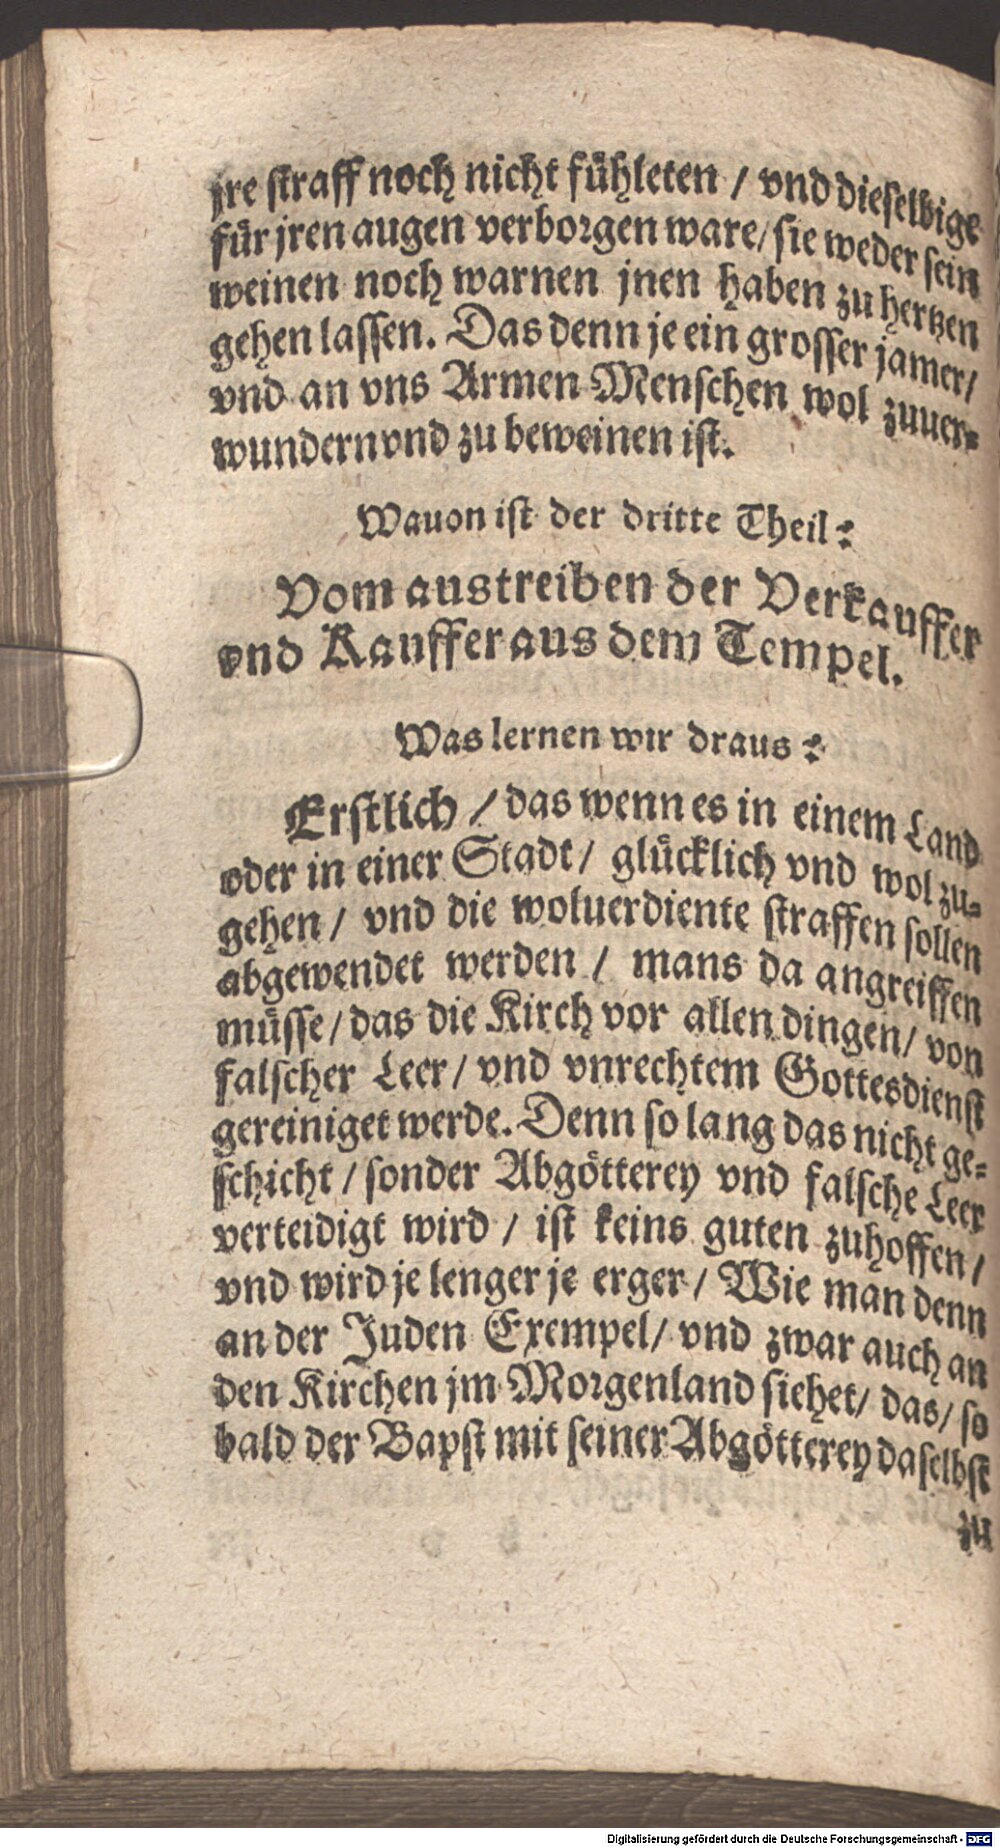 jre straff noch nicht fühleten / vnd dieselbige
für jren augen verborgen ware / sie weder sein
weinen noch warnen jnen haben zu hertzen
gehen lassen. Das denn je ein grosser jamer /
vnd an vns Armen Menschen wol zuuer-
wundern vnd zu beweinen ist.
Wauon ist der dritte Theil?
Vom austreiben der Verkauffer
vnd Kauffer aus dem Tempel.
Was lernen wir draus?
Erstlich / das wenn es in einem Land
oder in einer Stadt / glücklich vnd wol zu-
gehen / vnd die woluerdiente straffen sollen
abgewendet werden / mans da angreiffen
müsse / das die Kirch vor allen dingen / von
falscher Leer / vnd vnrechtem Gottesdienst
gereiniget werde. Denn so lang das nicht ge-
schicht / sonder Abgötterey vnd falsche Leer
verteidigt wird / ist keins guten zuhoffen /
vnd wird je lenger je erger / Wie man denn
an der Juden Exempel / vnd zwar auch an
den Kirchen jm Morgenland siehet / das / so
bald der Bapst mit seiner Abgötterey daselbst
zu
Digitalisierung gefördert durch die Deutsche Forschungsgemeinschaft - DFG